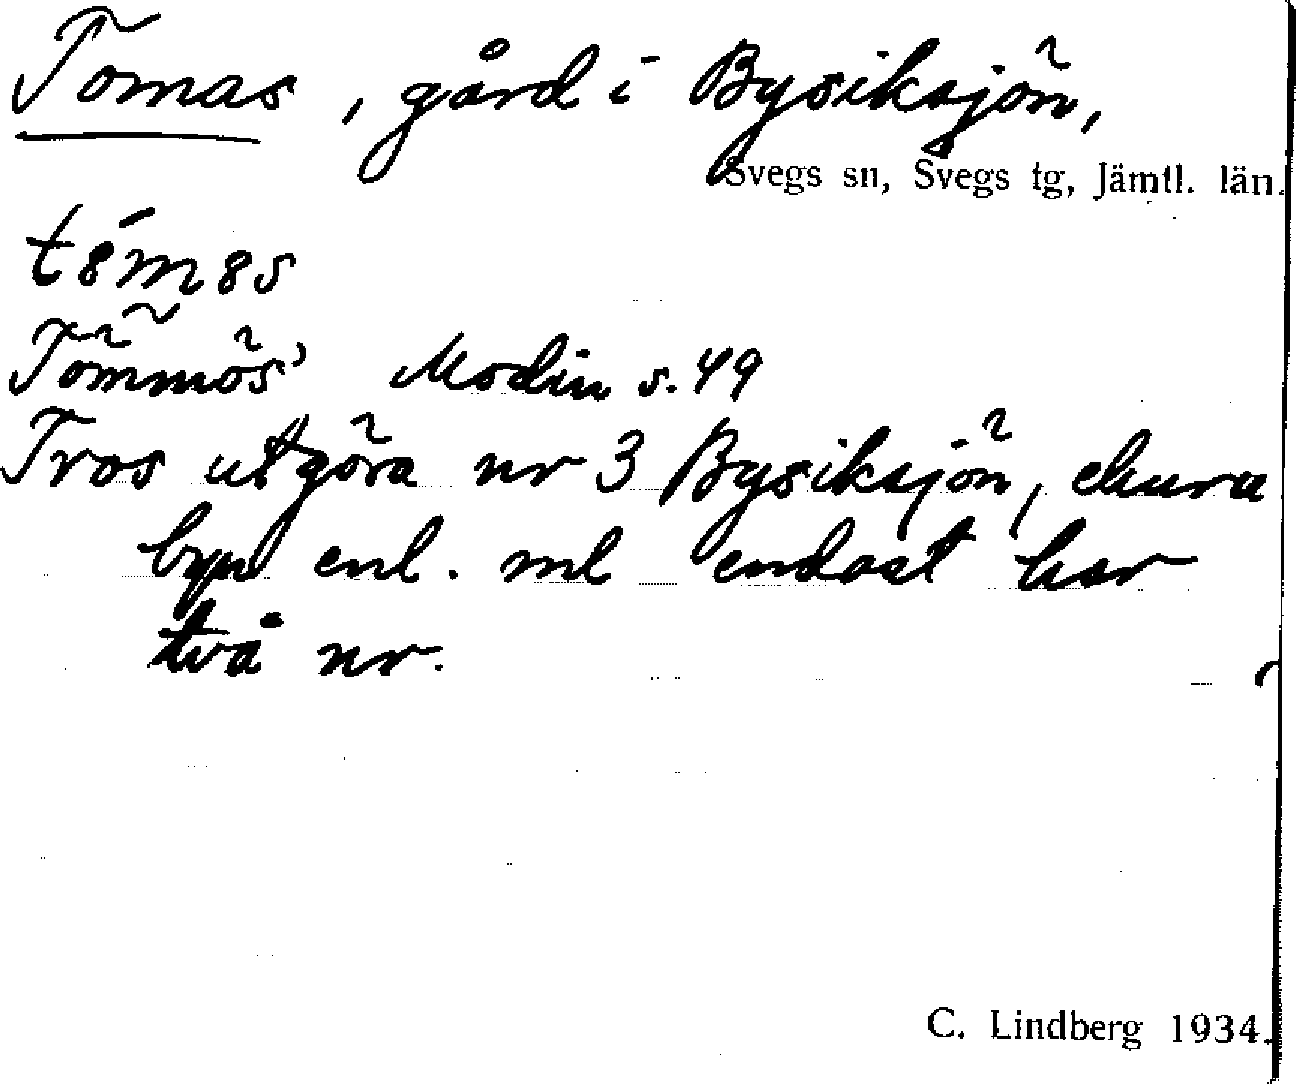 Tomas, gård i Bysiksjön,
Svegs sn, Svegs tg, Jämtl. län.
t8́m8s
Tömmös' Modin s. 49
Tros utgöra nr 3 Bysiksjön, ehuru
byn enl. ml endast har
två nr.
C. Lindberg 1934.